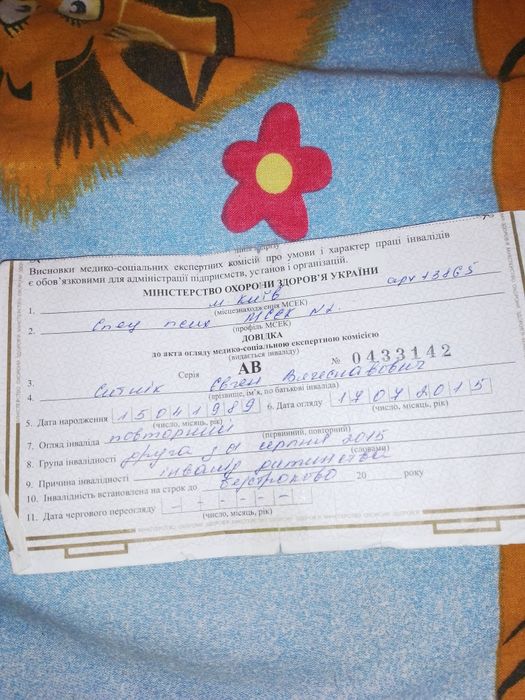 Висновки медико-соціальних експертних комісій про умови і характер праці інвалідів
є обов'язковими для адміністрації підприємств, установ і організацій.
МІНІСТЕРСТВО ОХОРОНИ ЗДОРОВ'Я УКРАЇНИ
1. м. Київ
(місцезнаходження МСЕК)
2. Спец псих МСЕК №1.
(профіль МСЕК)
ДОВІДКА
до акта огляду медико-соціальною експертною комісією
(видається інваліду)
3. Серія АВ № 0433142
4. Ситнік Євген Вячеславович
(прізвище, ім'я, по батькові інваліда)
5. Дата народження 15041989 6. Дата огляду 17072015
(число, місяць, рік) (число, місяць, рік)
7. Огляд інваліда повторний
(первинний, повторний)
8. Група інвалідності друга з 01 серпня 2015
(словами)
9. Причина інвалідності інвалід дитинства
10. Інвалідність встановлена на строк до безстроково 20 року
11. Дата чергового переогляду – – – – – –
(число, місяць, рік)